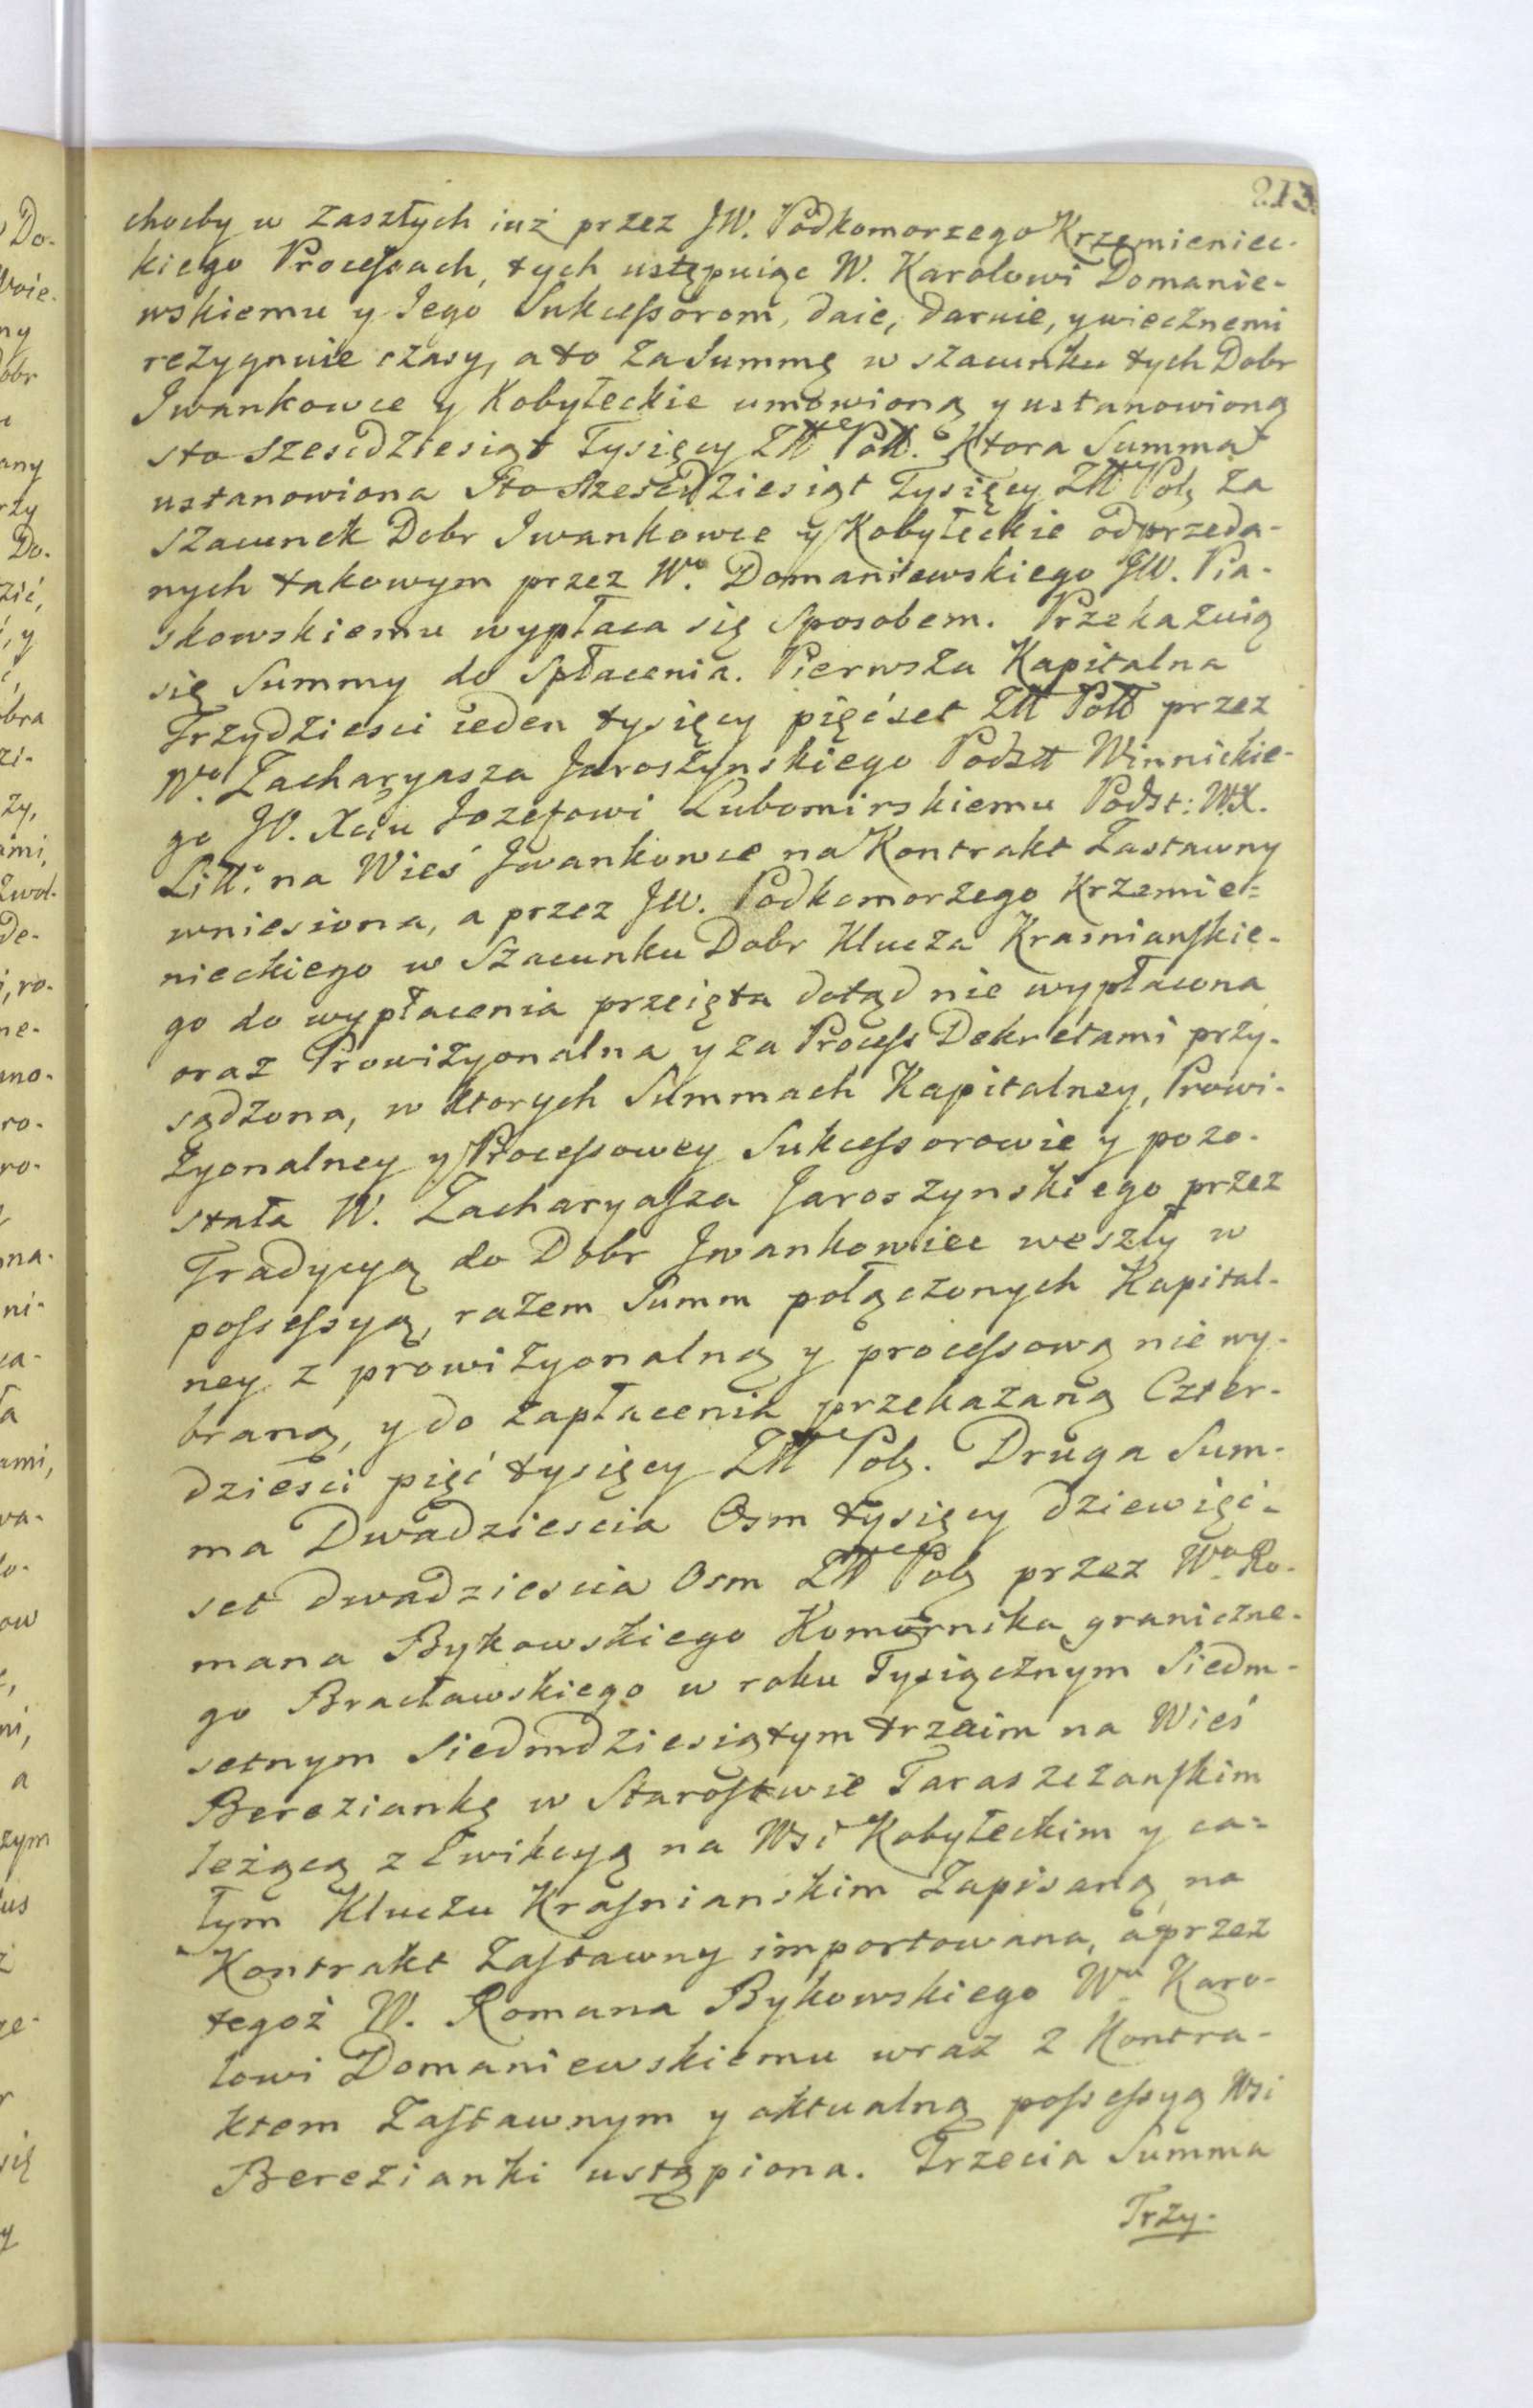 213.
choćby w zaszłych iuż przez JW. Podkomorzego Krzemieniec-
kiego Processach, tych ustępuiąc W. Karolowi Domanie-
wskiemu y Jego Sukcessorom, daie, daruie, y wiecznemi
rezygnuie czasy, a to za Summę w szacunku tych Dobr
Iwankowce y Kobyłeckie umowioną y ustanowioną
sto szescdziesiąt Tysięcy Złł Poll. Ktora Summa
ustanowiona Sto Szescdziesiąt Tysięcy Złł Polq za
szacunek Dobr Iwankowce y Kobyłeckie odprzeda-
nych takowym przez Wo. Domaniewskiego JW. Pia-
skowskiemu wypłaca się sposobem. Przekazuią
się Summy do Spłacenia. Pierwsza Kapitalna
Trzydziesci ieden tysięcy pięćset Złł Poll przez
Wo. Zacharyasza Jaroszynskiego Podstt Winnickie-
go JO. Xciu Jozefowi Lubomirskiemu Podst: W.X.
Litt: na Wieś Iwankowce na Kontrakt Zastawny
wniesiona, a przez JW. Podkomorzego Krzemie=
nieckiego w Szacunku Dobr Klucza Krasnianskie-
go do wypłacenia przeięta dotąd nie wypłacona
oraz Prowizyonalna y za Process Dekretami przy-
sądzona, w ktorych Summach Kapitalney, Prowi-
zyonalney y Processowey Sukcessorowie y pozo-
stała W. Zacharyasza Jaroszynskiego przez
Tradycyą do Dobr Iwankowiec weszły w
possessyą, razem Summ połączonych Kapital-
ney z prowizyonalną y processową nie wy-
braną, y do zapłacenia przekazaną Czter-
dzieści pięć tysięcy Złł Polq. Druga Sum-
ma Dwadziescia Osm tysięcy dziewięć-
set dwadziescia Osm Złł Polq przez Wo. Ro-
mana Bykowskiego Komornika graniczne-
go Bracławskiego w roku Tysiącznym Siedm-
setnym Siedmdziesiątym trzecim na Wieś
Bereziankę w Starostwie Taraszczanskim
leżącą z Ewikcyą na Wsi Kobyłeckim y ca=
łym Kluczu Krasnianskim Zapisaną na
Kontrakt Zastawny importowana, a przez
tegoż W. Romana Bykowskiego Wu. Karo-
lowi Domaniewskiemu wraz z Kontra-
ktem Zastawnym y aktualną possessyą Wsi
Berezianki ustąpiona. Trzecia Summa
Trzy-